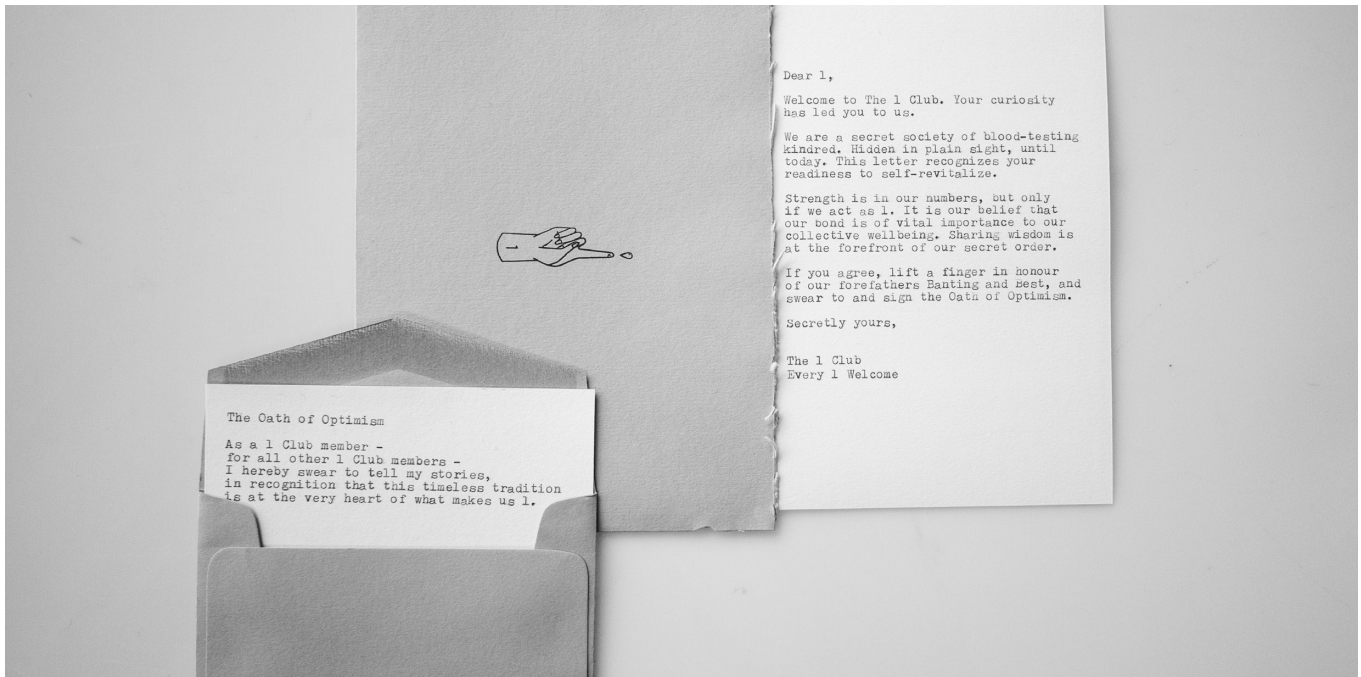 Dear 1,
Welcome to The 1 Club. Your curiosity
has led you to us.
We are a secret society of blood-testing
kindred. Hidden in plain sight, until
today. This letter recognizes your
readiness to self-revitalize.
Strength is in our numbers, but only
if we act as 1. It is our belief that
our bond is of vital importance to our
collective wellbeing. Sharing wisdom is
at the forefront of our secret order.
If you agree, lift a finger in honour
of our forefathers Banting and Best, and
swear to and sign the Oath of Optimism.
Secretly yours,
The 1 Club
Every 1 Welcome
The Oath of Optimism
As a 1 Club member -
for all other 1 Club members -
I hereby swear to tell my stories,
in recognition that this timeless tradition
is at the very heart of what makes us 1.